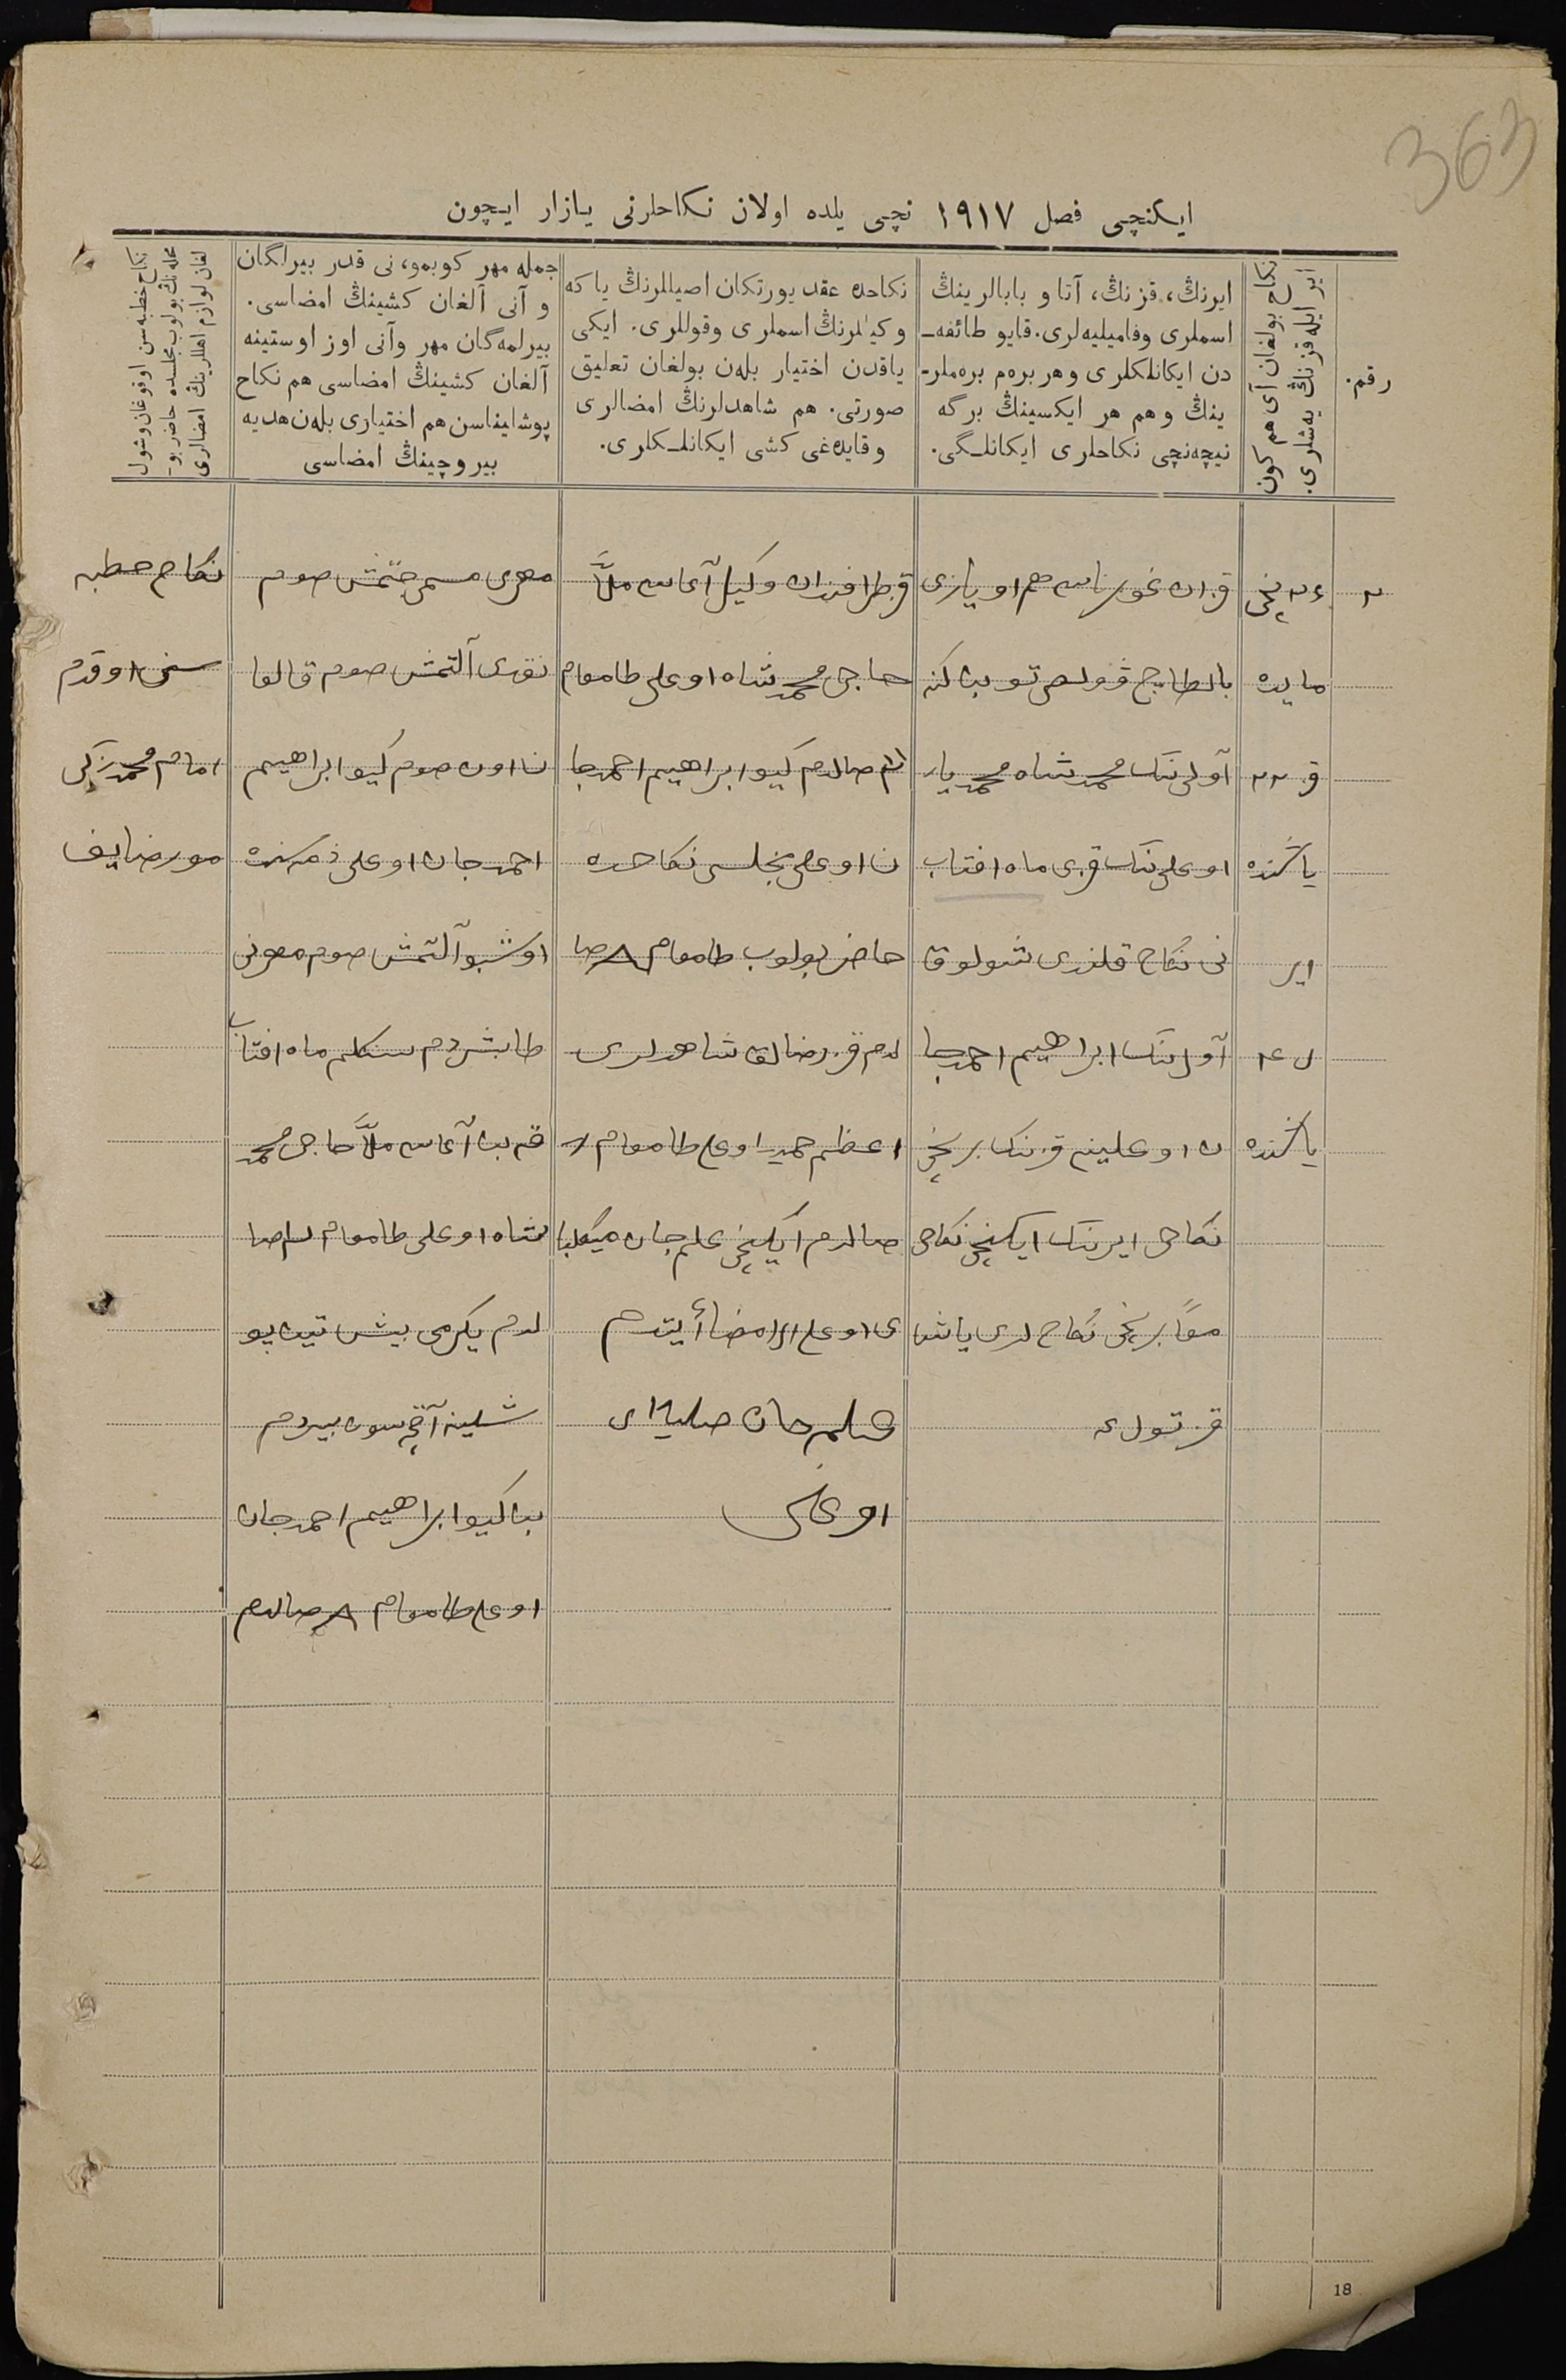 363
ایکنچی فصل ۱۹۱۷ نچی یلده اولان نکاحلرنی یازار ایچون
رقم.
نکاح بولغان آی هم کون
ایر ایله قزنڭ یه‌شلری.
ایرنڭ، قزنڭ، آتا و بابالرینڭ
اسملری وفامیلیه‌لری. قایو طائفه‌ـ
دن ایکانلکلری وهر بره‌م بره‌ملرـ
ینڭ وهم هر ایکسینڭ برگه
نیچه‌نچی نکاحلری ایکانلـگی.
نکاحده عقد یورتکان اصیللرنڭ یاکه
وکیللرنڭ اسملری وقوللری. ایکی
یاقدن اختیار بله‌ن بولغان تعلیق
صورتی. هم شاهدلرنڭ امضالری
وقایده‌غی کشی ایکانلـکلری.
جمله مهر کوبمو، نی قدر بیرلگان
و آنی آلغان کشینڭ امضاسی.
بیرلمه‌گان مهر وآنی اوز اوستینه
آلغان کشینڭ امضاسی هم نکاح
پوشلیناسن هم اختیاری بله‌ن هدیه
بیروچینڭ امضاسی
نکاح خطبه‌سن اوقوغان وشول
محله‌نڭ بولوب مجلسده حاضر بوـ
لغان لوازم اهللرینڭ امضالری
۲
۲۶ نچی
مایده
قز ۲۲
یاشنده
ایر
یاشنده
قزان غوبرناسی هم اویازی
بالطاچ ڤولصی
آولی ننک محمدشاه محمدیار
اوغلی ننک قزی ماه افتاب
نی نکاح قلندی شولوق
آول ننک ابراهیم احمدجا
ن اوغلینه قزننک برنچی
نکاحی ایرننک ایکنچی نکاحی
معًا برنچی نکاح لری یاشا
قز تول
قز طرافندان وکیل آغاسی ملّا
حاجی محمدشاه اوغلی طامغام
صالدم کیو ابراهیم احمدجا
ن اوغلی مجلس نکاحده
حاضر بولوب طامغام صا
لدم قز رضالق شاهدلری
اعظم حمید اوغلی طامغام
صالدم ایکنچی علم جان
اوغلی امضا أیتدم
علم جان
اوغلی
مهری مسمی یتمش صوم
نقدی آلتمش صوم قالغا
ن اون صوم کیو ابراهیم
احمدجان اوغلی ذمه‌سنده
اوشبو آلتمش صوم مهرنی
طابشردم سنکلم ماه افتاب
قه بن آغاسی ملّا حاجی محمد
شاه اوغلی طامغام صا
لدم یکرمی بیش تین پو
شلینه آقچه‌سون بیردم
بن کیو ابراهیم احمدجان
اوغلی طامغام صالدم
نکاح خطبه
سنی اوقدم
امام محمدزکی
مورضایف
18